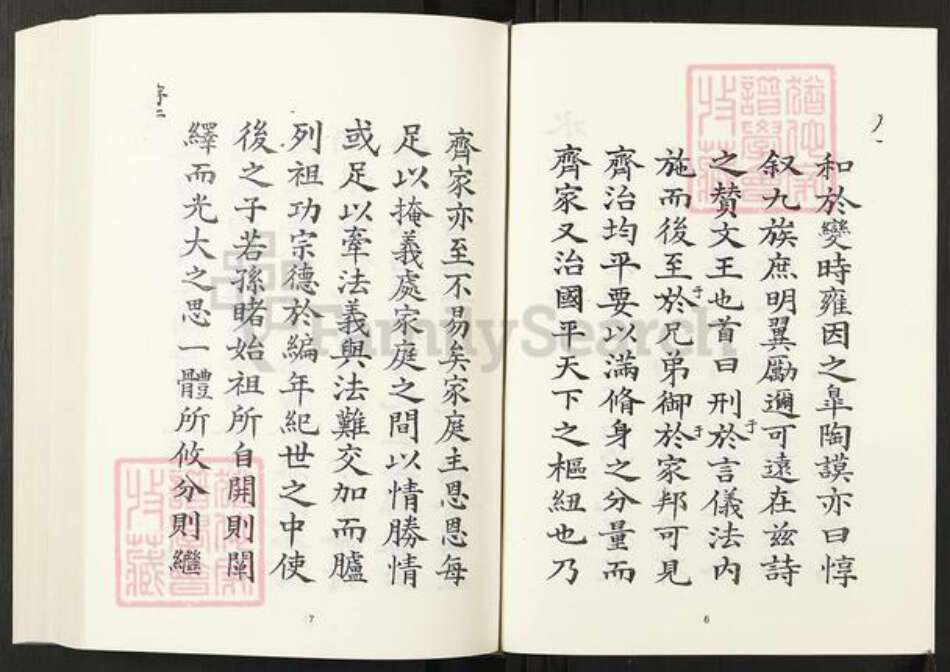 和於變時雍因之臯陶謨亦曰惇
叙九族庶明翼勵邇可遠在茲詩
之贊文王也首曰刑於言儀法內
于
施而後至於兄弟御於家邦可見
于
于
齊治均平要以滿脩身之分量而
齊家又治國平天下之樞紐也乃
6
齊家亦至不易矣家庭主恩恩每
足以掩義處家庭之間以情勝情
或足以牽法義與法難交加而臚
列祖功宗德於編年紀世之中使
後之子若孫睹始祖所自開則闡
繹而光大之思一體所攸分則繼
序二
7
FamilySearch